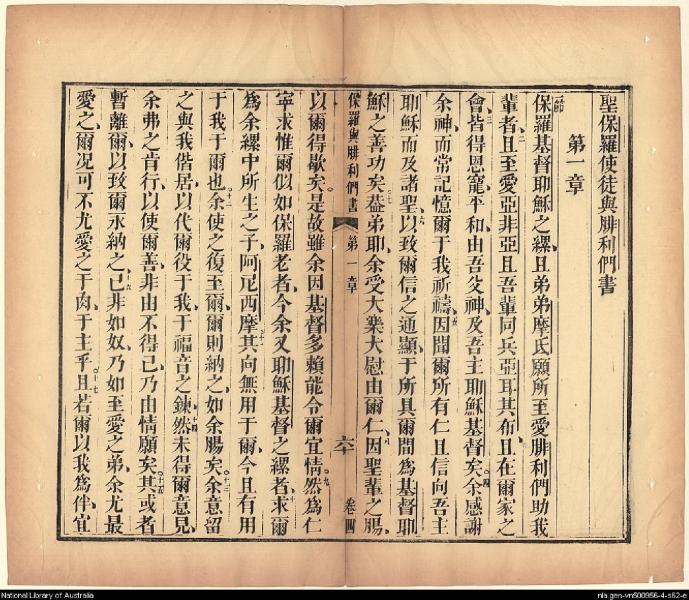 聖保羅使徒與腓利們書
第一章
保羅基督耶穌之縲且弟弟摩氐願所至愛腓利們助我
輩者且至愛亞非亞且吾輩同兵亞耳其布且在爾家之
會皆得恩寵平和由吾父神及吾主耶穌基督矣余感謝
余神而常記憶爾于我祈禱因聞爾所有仁且信向吾主
耶穌而及諸聖以致爾信之通顯于所具爾間為基督耶
穌之善功矣葢弟耶余受大樂大慰由爾仁因聖輩之腸
保羅與腓利們書 第一章 六十 卷四
以爾得歇矣是故雖余因基督多賴能令爾宜情然為仁
寧求惟爾似如保羅老者今余又耶穌基督之縲者求爾
為余縲中所生之子阿尼西摩其向無用于爾今且有用
于我于爾也余使之復至爾爾則納之如余腸矣余意留
之與我偕居以代爾役于我于福音之鍊然未得爾意見
余弗之肯行以使爾善非由不得己乃由情願矣其或者
暫離爾以致爾永納之已非如奴乃如至愛之弟余尤最
愛之爾况可不尤愛之于肉于主乎且若爾以我為伴宜
National Library of Australia
nla.gen-vn500956-4-s62-e